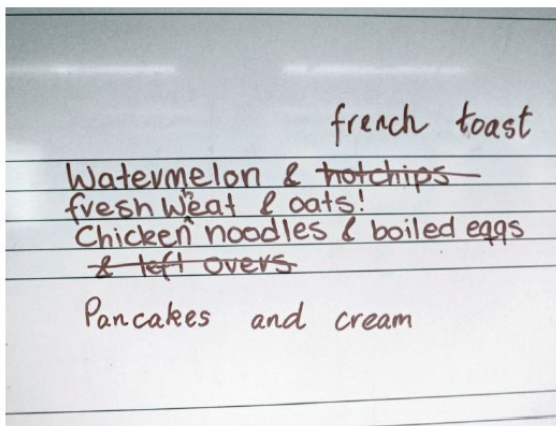 french toast
Watermelon & hotchips
fresh Wheat & oats!
Chicken noodles & boiled eggs
& left overs
Pancakes and cream